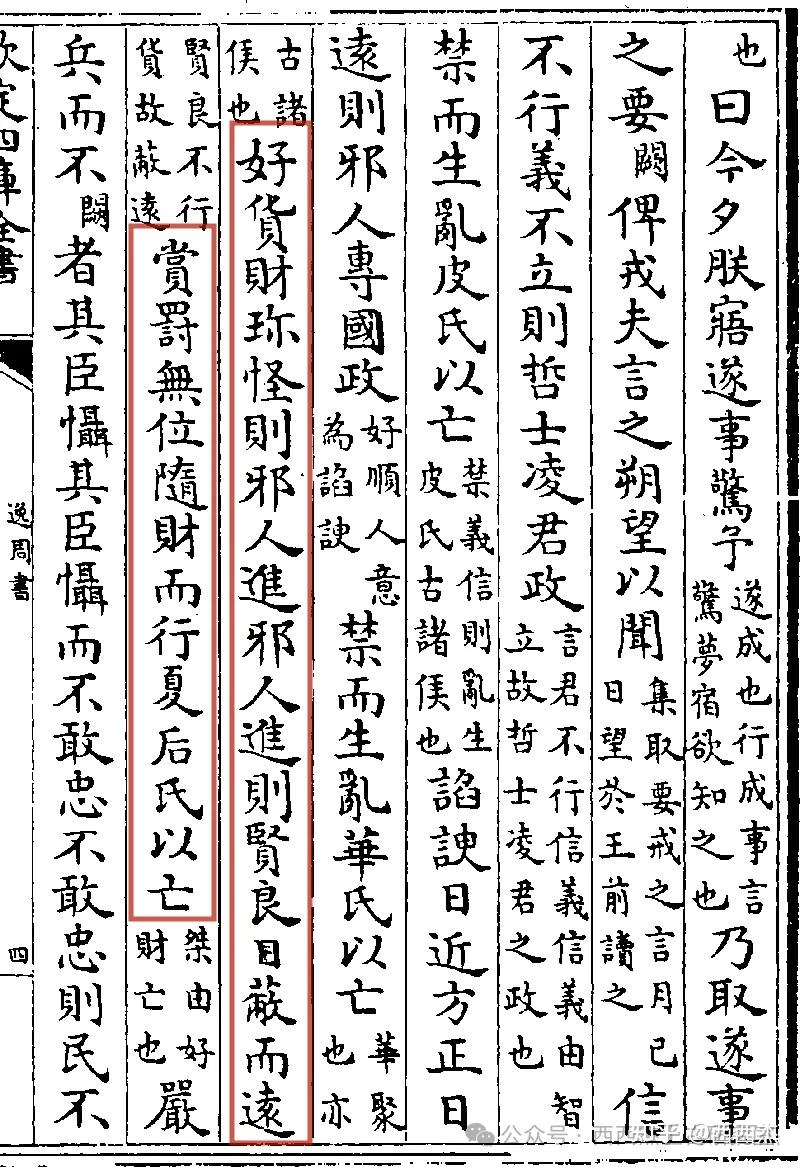 也曰今夕朕寤遂事驚予遂成也行成事言驚夢宿欲知之也乃取遂事
之要闕俾戎夫言之朔望以聞集取要戒之言月巳日望於王前讀之信
不行義不立則哲士凌君政言君不行信義信義由智立故哲士凌君之政也
禁而生亂皮氏以亡禁義信則亂生皮氏古諸侯也諂諛日近方正日
遠則邪人專國政好順人意為諂諛禁而生亂華氏以亡華聚也亦
古諸侯也好貨財珎怪則邪人進邪人進則賢良日蔽而遠
賢良不行貨故蔽遠賞罰無位隨財而行夏后氏以亡桀由好財亡也嚴
兵而不闕者其臣懾其臣懾而不敢忠不敢忠則民不
欽定四庫全書
逸周書
四
公众号
知乎 @西西杰